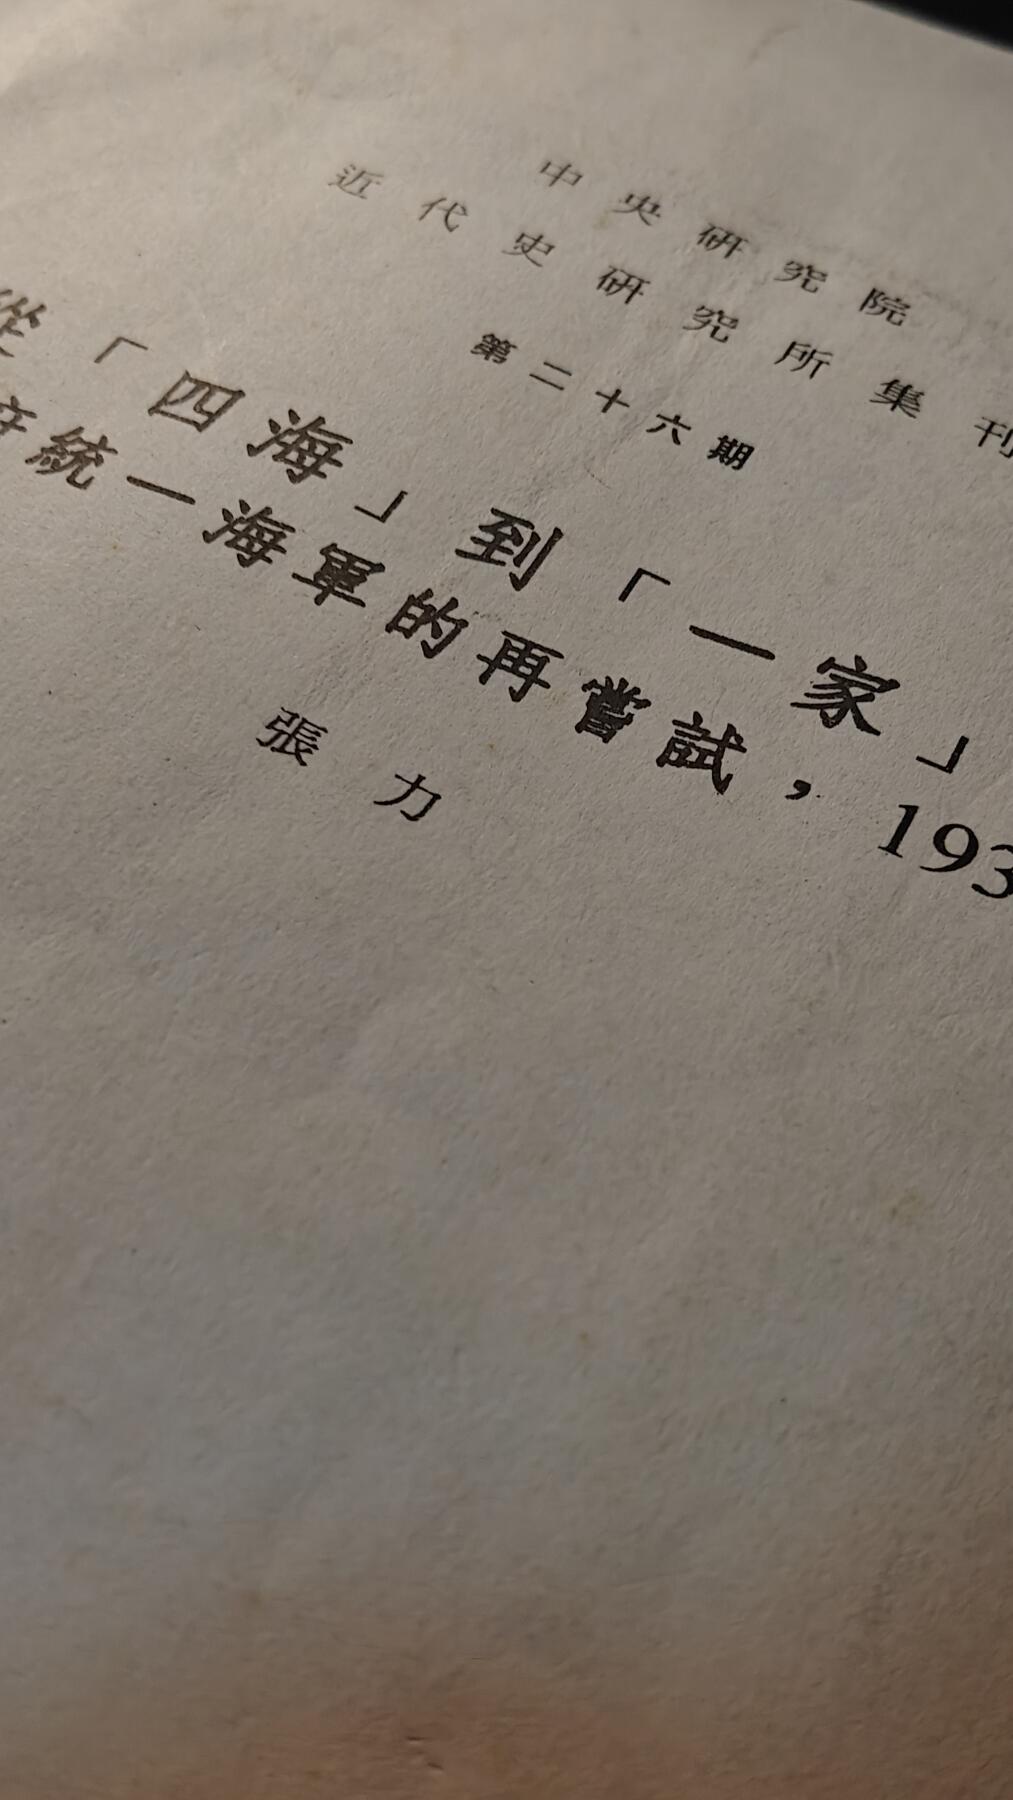 中央研究院
近代史研究所集刊
第二十六期
從「四海」到「一家」
統一海軍的再嘗試，193
張力